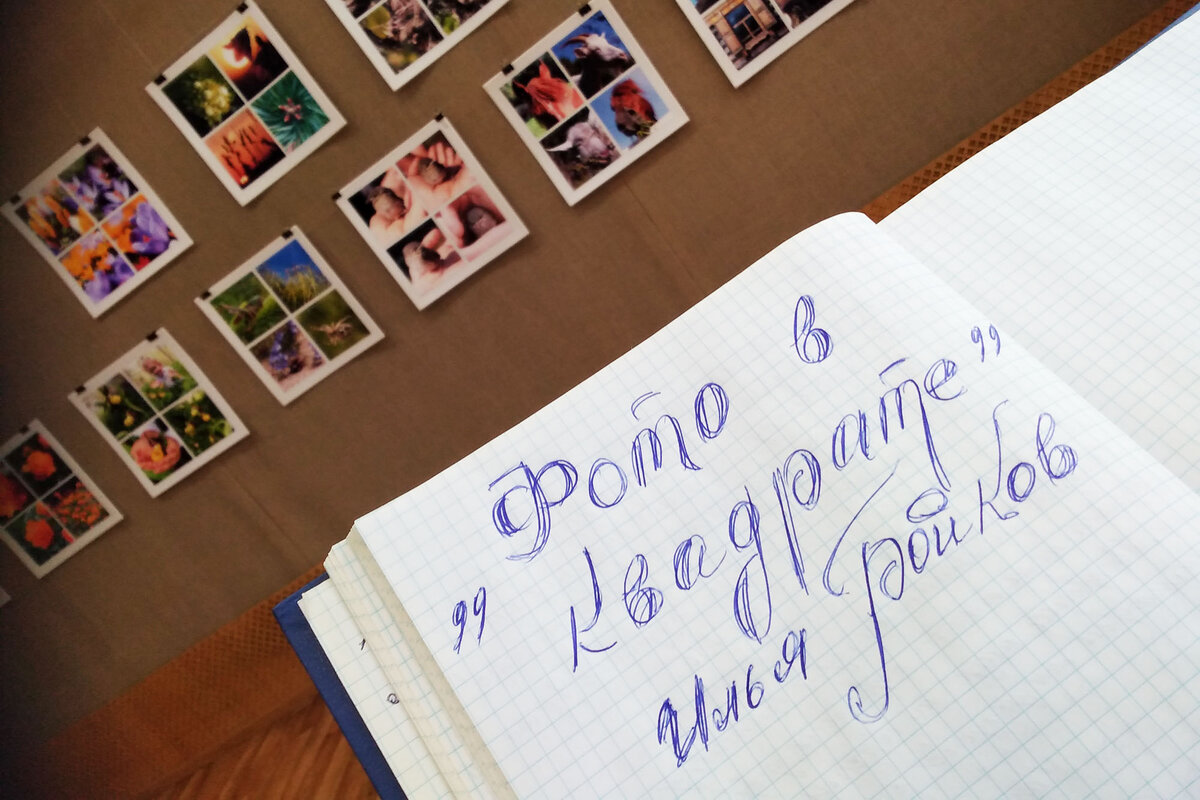 Фото в
„Квадрате”
Илья Ройков